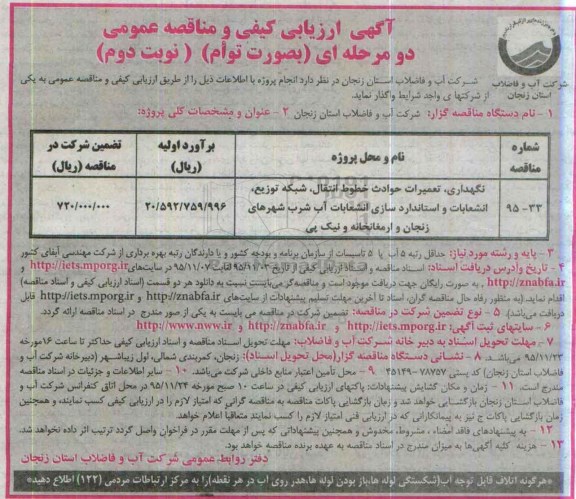 آگهی ارزیابی کیفی و مناقصه عمومی
دو مرحله ای (بصورت توأم) (نوبت دوم)
شرکت آب و فاضلاب
استان زنجان
شرکت آب و فاضلاب استان زنجان در نظر دارد انجام پروژه با اطلاعات ذیل را از طریق ارزیابی کیفی و مناقصه عمومی به یکی
از شرکتهای واجد شرایط واگذار نماید.
۱ - نام دستگاه مناقصه گزار: شرکت آب و فاضلاب استان زنجان ۲ - عنوان و مشخصات کلی پروژه:
شماره مناقصه
نام و محل پروژه
برآورد اولیه (ریال)
تضمین شرکت در مناقصه (ریال)
۹۵-۳۳
نگهداری، تعمیرات حوادث خطوط انتقال، شبکه توزیع،
انشعابات و استاندارد سازی انشعابات آب شرب شهرهای
زنجان و ارمغانخانه و نیک پی
۲۰/۵۹۲/۷۵۹/۹۹۶
۷۲۰/۰۰۰/۰۰۰
۳ - پایه و رشته مورد نیاز: حداقل رتبه ۵ آب یا ۵ تاسیسات از سازمان برنامه و بودجه کشور و یا دارندگان رتبه بهره برداری از شرکت مهندسی آبفای کشور
۴ - تاریخ و آدرس دریافت اسناد: اسناد مناقصه و اسناد ارزیابی کیفی از تاریخ ۹۵/۱۱/۰۳ لغایت ۹۵/۱۱/۰۷ در سایت‌های http://iets.mporg.ir و
http://znabfa.ir به صورت رایگان جهت دریافت موجود است و مناقصه‌گر می‌بایست نسبت به دانلود هر دو قسمت (اسناد ارزیابی کیفی و اسناد مناقصه)
اقدام نماید. (به منظور رفاه حال مناقصه گران، اسناد تا آخرین مهلت تسلیم پیشنهادات از سایت‌های http://znabfa.ir و http://iets.mporg.ir قابل
دریافت می‌باشد). ۵ - نوع تضمین شرکت در مناقصه: تضمین شرکت در مناقصه می بایست به یکی از صور مندرج در اسناد مناقصه ارائه گردد.
۶ - سایتهای ثبت آگهی: http://iets.mporg.ir و http://znabfa.ir و http://www.nww.ir
۷ - مهلت تحویل اسناد به دبیر خانه شرکت آب و فاضلاب: مهلت تحویل اسناد مناقصه و اسناد ارزیابی کیفی حداکثر تا ساعت ۱۶ مورخه
۹۵/۱۱/۲۳ می‌باشد. ۸ - نشانی دستگاه مناقصه گزار (محل تحویل اسناد): زنجان، کمربندی شمالی، اول زیباشهر (دبیرخانه شرکت آب و
فاضلاب استان زنجان) کد پستی ۷۸۷۵۷-۴۵۱۴۹ ۹ - محل تأمین اعتبار منابع داخلی شرکت می‌باشد. ۱۰ - سایر اطلاعات و جزئیات در اسناد مناقصه
مندرج است. ۱۱ - زمان و مکان گشایش پیشنهادات: پاکتهای ارزیابی کیفی در ساعت ۱۰ صبح مورخه ۹۵/۱۱/۲۴ در محل اتاق کنفرانس شرکت آب و
فاضلاب استان زنجان بازگشایی خواهد شد و زمان بازگشایی پاکات مناقصه به مناقصه گرانی که امتیاز لازم را در ارزیابی کیفی کسب نمایند، و همچنین
زمان بازگشایی پاکات ج نیز به پیمانکارانی که در ارزیابی فنی امتیاز لازم را کسب نمایند متعاقبا اعلام خواهد.
۱۲ - به پیشنهادهای فاقد امضاء، مشروط، مخدوش و همچنین پیشنهاداتی که پس از مهلت مقرر در فراخوان واصل گردد ترتیب اثر داده نخواهد شد.
۱۳ - هزینه کلیه آگهی‌ها به میزان مندرج در اسناد مناقصه به عهده برنده مناقصه خواهد بود.
دفتر روابط عمومی شرکت آب و فاضلاب استان زنجان
«هرگونه اتلاف قابل توجه آب (شکستگی لوله ها، باز بودن لوله ها، هدر روی آب در هر نقطه) را به مرکز ارتباطات مردمی (۱۲۲) اطلاع دهید»